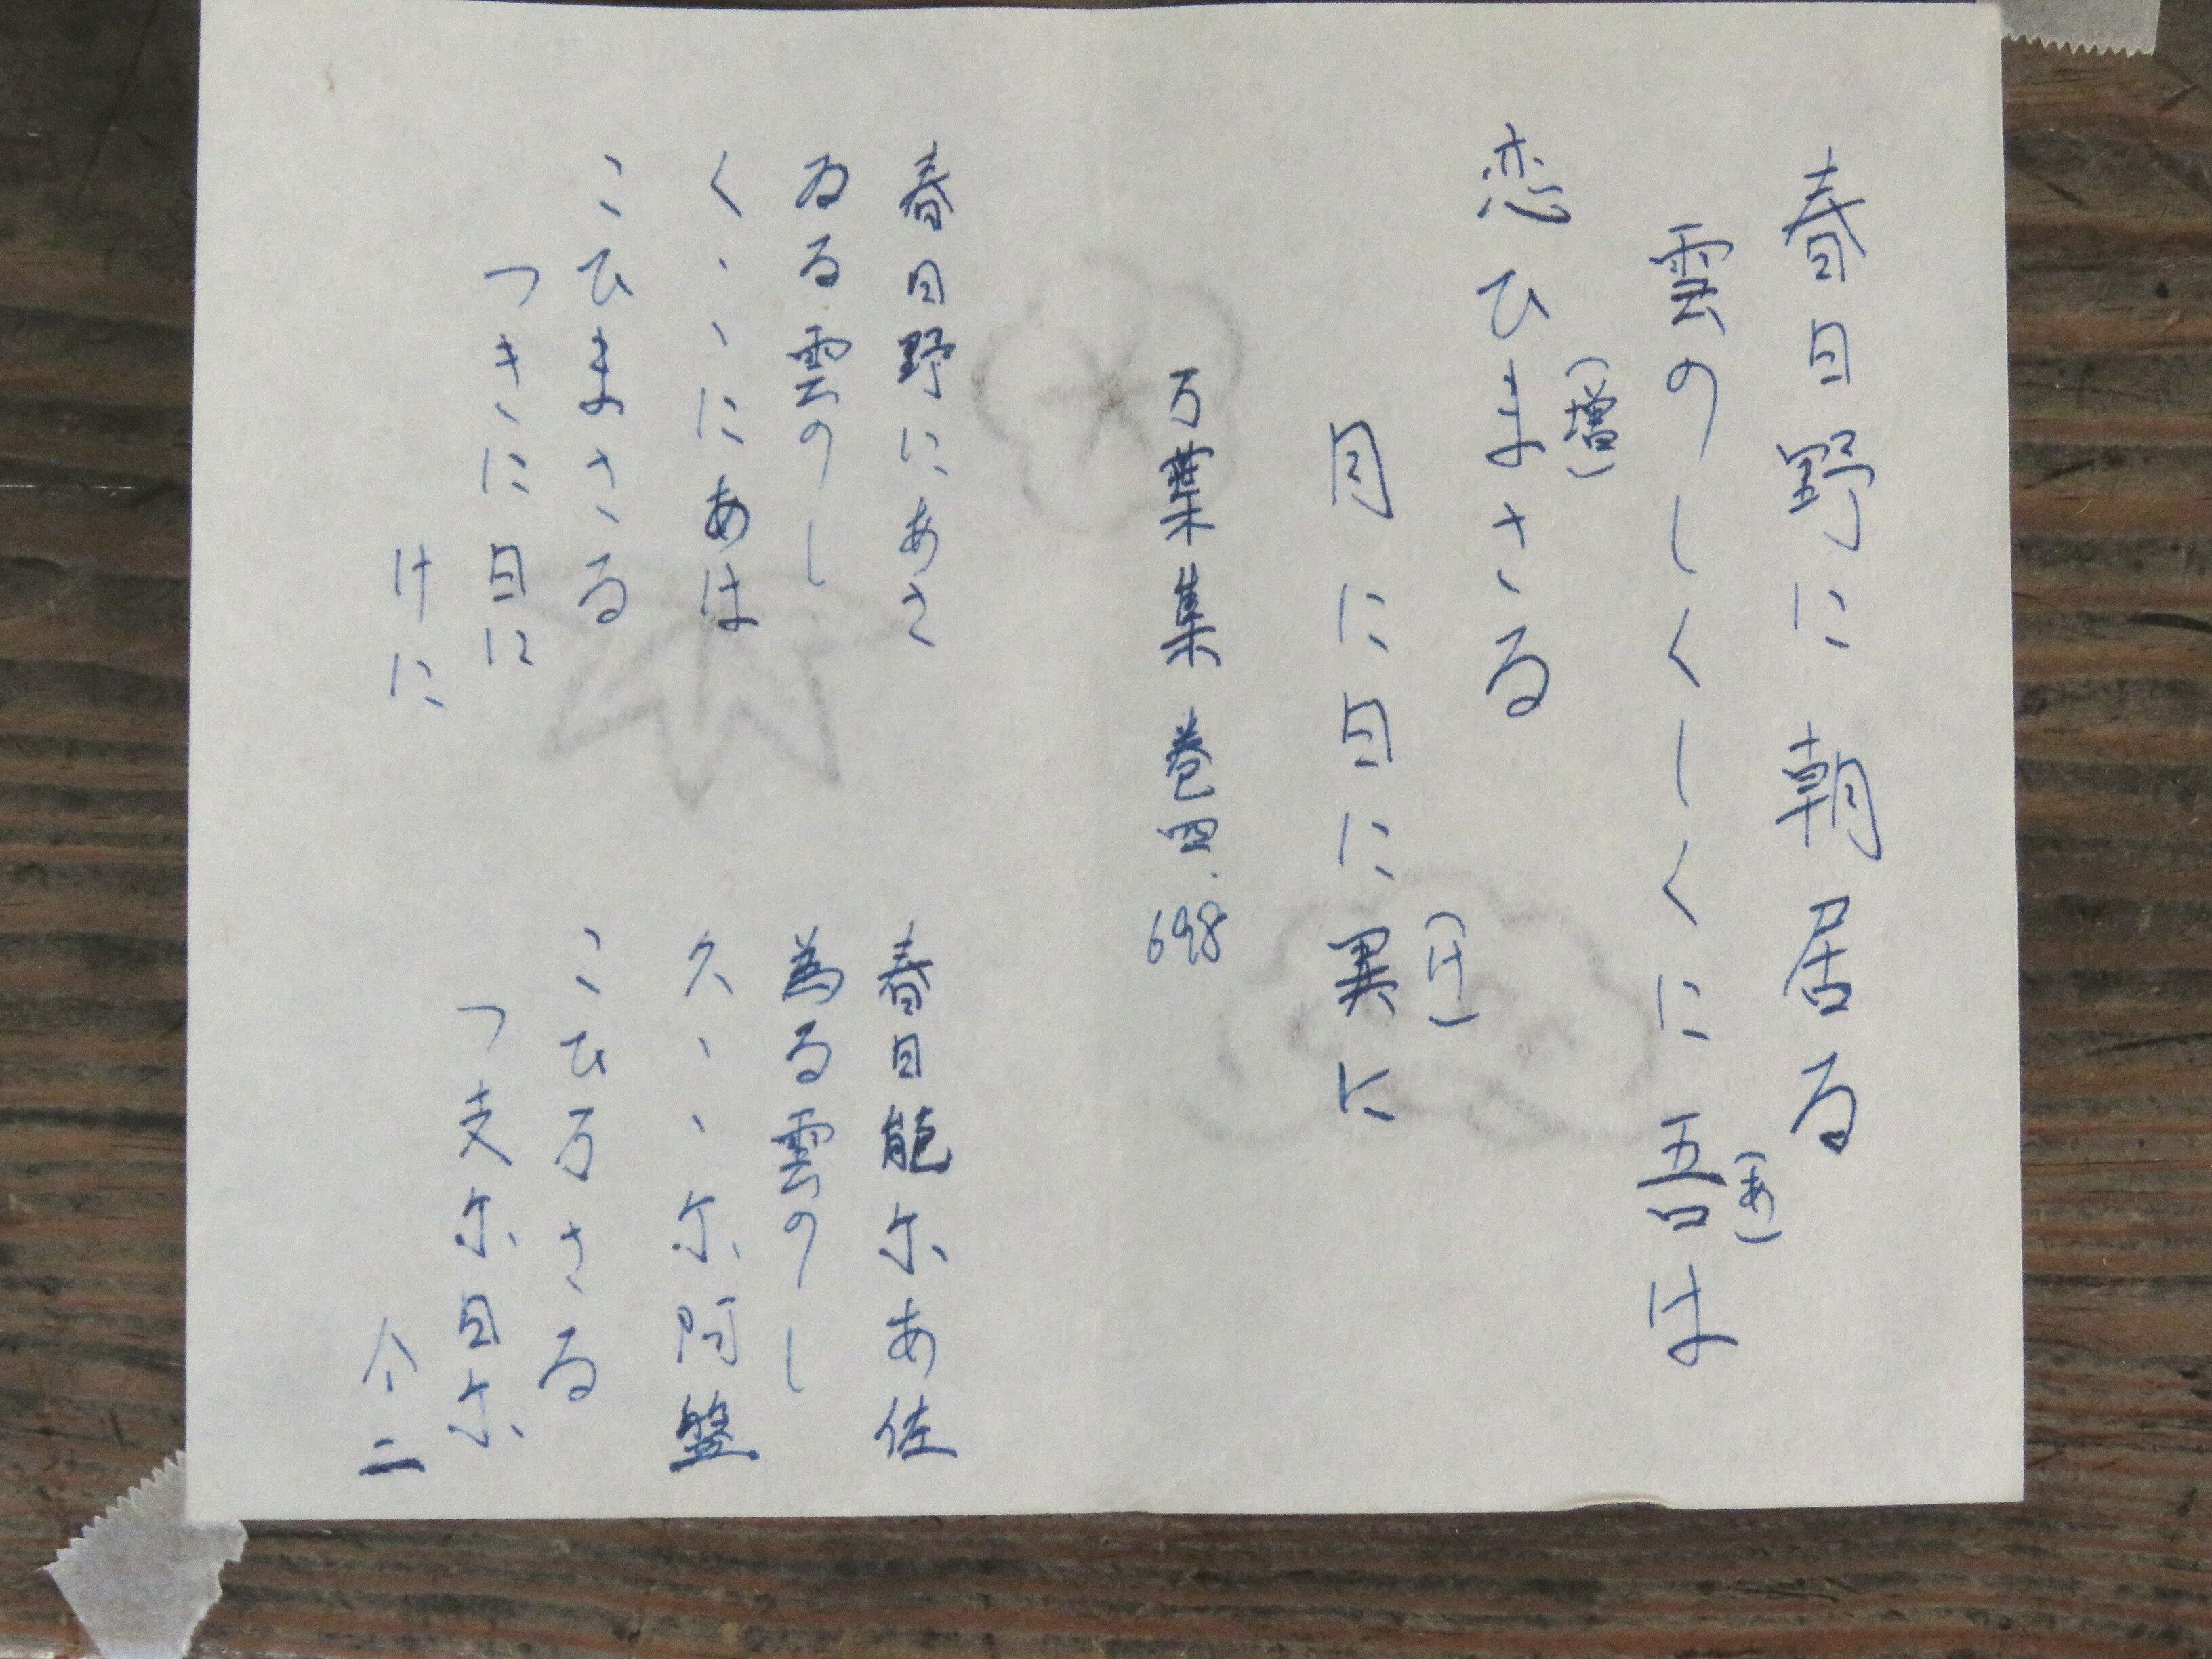 春日野に朝居る
雲のしくしくに吾は
(あ)
恋ひまさる
(益)
月に日に異に
(け)
万葉集 巻四.698
春日野にあさ
ゐる雲のし
くゝゝにあは
こひまさる
つきに日に
けに
春日能尓あ佐
為る雲のし
久ゝゝ尓阿盤
こひ万さる
つ支尓日尓
介二